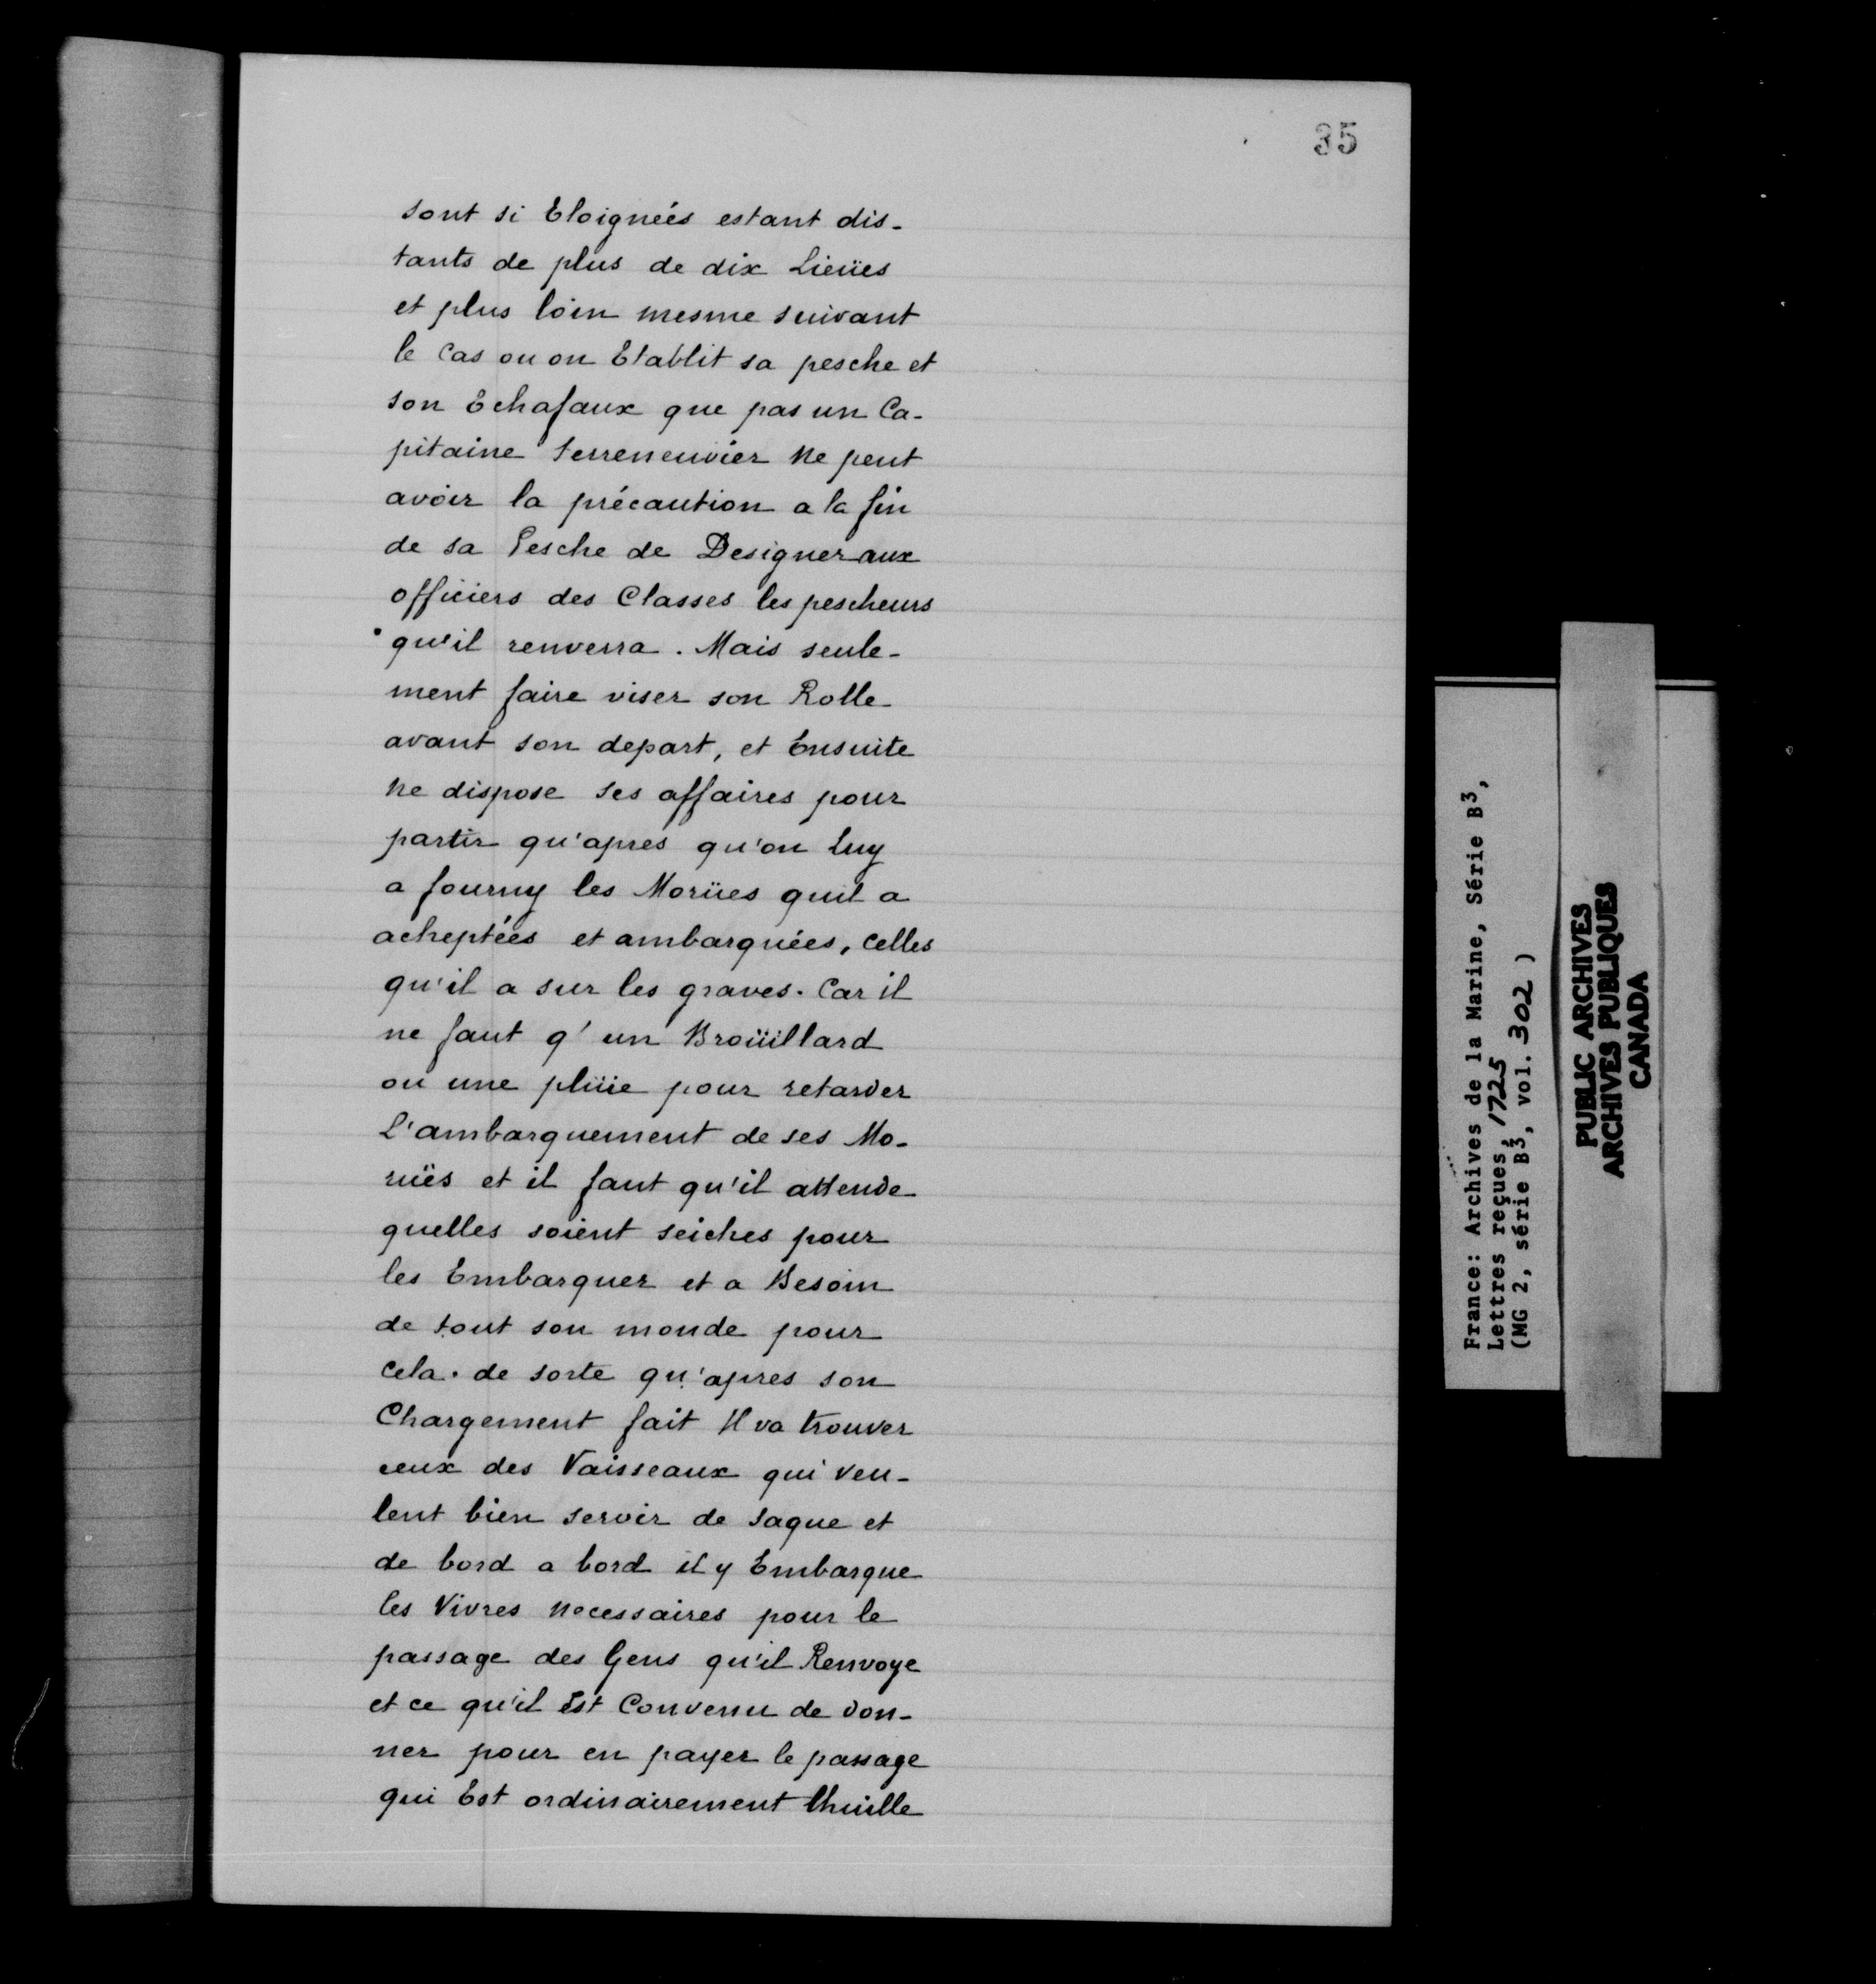 35
sont si Eloignées estant dis-
tants de plus de dix Lieües
et plus loin mesme suivant
le Cas ou on Etablit sa pesche et
son Echafaux que pas un Ca-
pitaine terreneuvier ne peut
avoir la précaution a la fin
de sa Pesche de Designer aux
officiers des Classes les pescheurs
qu'il renverra. Mais seule-
ment faire viser son Rolle
avant son depart, et Ensuite
ne dispose ses affaires pour
partir qu'apres qu'on Luy
a fourny les Morües quil a
acheptées et ambarquées, celles
qu'il a sur les graves. Car il
ne faut q'un Broüillard
ou une plüie pour retarder
L'ambarquement de ses Mo-
rüës et il faut qu'il attende
quelles soient seiches pour
les Embarquer et a Besoin
de tout son monde pour
cela. de sorte qu'apres son
Chargement fait Il va trouver
ceux des Vaisseaux qui veu-
lent bien servir de saque et
de bord a bord il y Embarque
les Vivres necessaires pour le
passage des Gens qu'il Renvoye
et ce qu'il Est Convenu de don-
ner pour en payer le passage
qui Est ordinairement lhuille
France: Archives de la Marine, Série B3,
Lettres reçues, 1725
(MG 2, série B3, vol. 302 )
PUBLIC ARCHIVES
ARCHIVES PUBLIQUES
CANADA